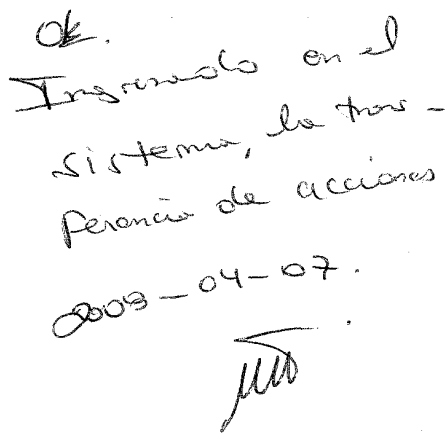 Ok.
Ingresado en el
sistema, la trans-
ferencia de acciones
2009-04-07.